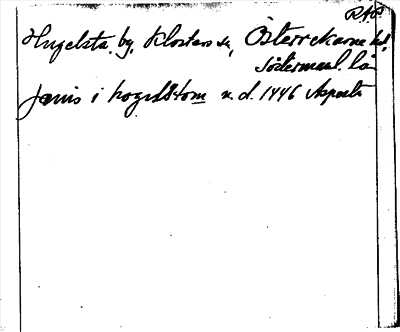 Hugelsta by, Klosters sn, Österrekarne hd,
Södermanl. län
Jönis i hogelstom n. d. 1446